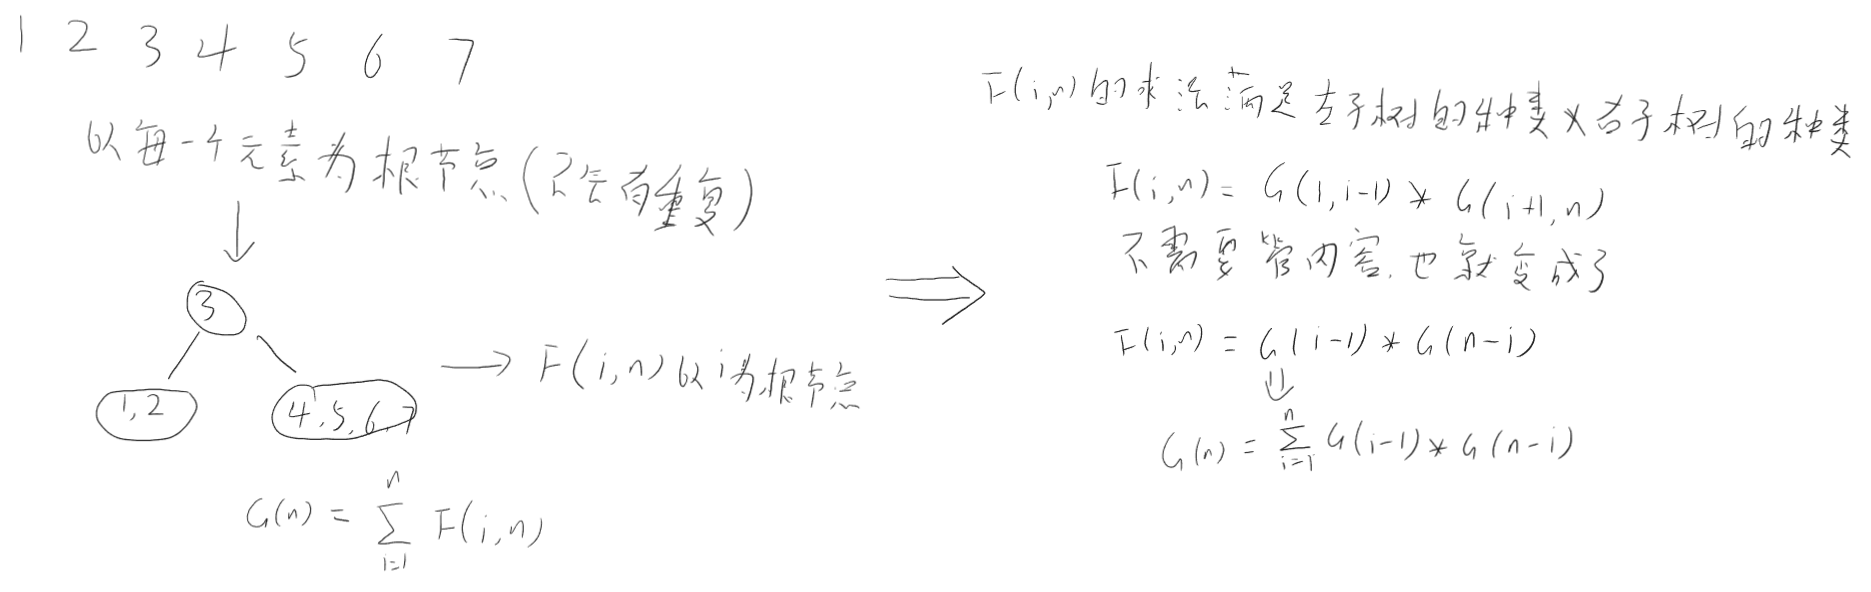 1 2 3 4 5 6 7
以每一个元素为根节点(不会有重复)
3
1,2
4,5,6,7
→ F(i,n)以i为根节点
G(n) = ∑_{i=1}^{n} F(i,n)
F(i,n)的求法满足左子树的种类×右子树的种类
F(i,n) = G(1,i-1) * G(i+1,n)
不需要管内容.也就变成了
F(i,n) = G(i-1) * G(n-i)
G(n) = ∑_{i=1}^{n} G(i-1) * G(n-i)